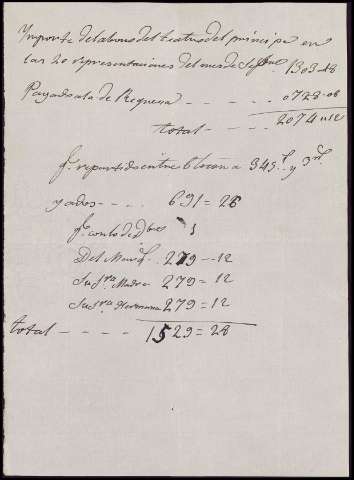 Ymporte del abono del teatro del principe en
las 20 representaciones del mes de Sepbre 1303-18
Pagado ala de Requena - - - - - 0728-08
total - - - - 2074-12
qe repartidos entre 6 tocan a 345 rs y 3 ms
y a dos - - - - 691=28
qe con lo de Dbre
Del 279-12
Su Sra Madre 279=12
Su Sra Hermana 279=12
total - - - - - 1529=28